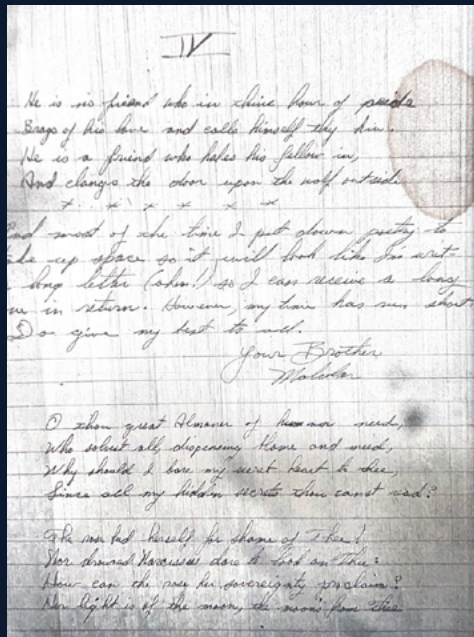 IV
He is no friend who in thine hour of pride
Brags of his love and calls himself thy kin.
He is a friend who hales his fellow in,
And clangs the door upon the wolf outside.
x x x x x x
And most of the time I put down poetry to
take up space so it will look like I'm writ-
long letter (ahem!) so I can receive a long
in return. However, my time has run short
Do give my best to all.
Your Brother
Malcolm
O thou great Almoner of human need,
Who solvest all, dispensing blame and meed,
Why should I bare my secret heart to thee,
Since all my hidden secrets thou canst read?
The hid herself for shame of Thee!
Nor drowned Narcissus dare to look on Thee:
How can the rose her sovereignty proclaim?
Her light is of the moon, the moon's from thee